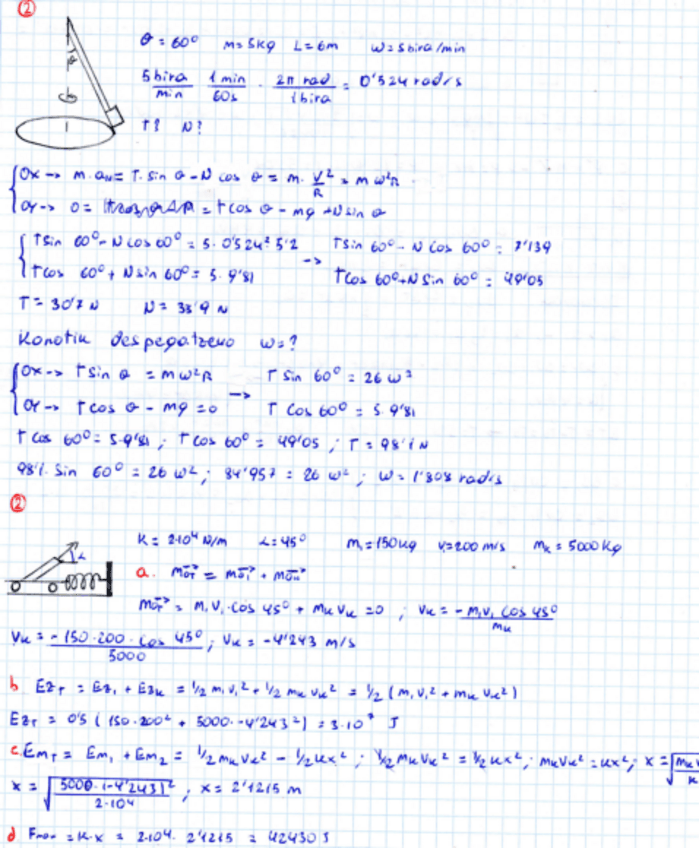 ②
θ = 60º m = 5kg L = 6m ω = 5 bira/min
5 bira/min · 1 min/60s · 2π rad/1 bira = 0'524 rad/s
T? N?
Ox → m·aN = T·sin θ - N cos θ = m·V²/R = m ω²R
Oy → 0 = T cos θ - mg + N sin θ
Tsin 60º - N cos 60º = 5·0'524²·5'2 → Tsin 60º - N cos 60º = 7'139
Tcos 60º + N sin 60º = 5·9'81 Tcos 60º + N sin 60º = 49'05
T = 30'7 N N = 38'9 N
Konotik despegatzeko ω = ?
Ox → T sin θ = m ω²R → T sin 60º = 26 ω²
Oy → T cos θ - mg = 0 T cos 60º = 5·9'81
T cos 60º = 5·9'81 ; T cos 60º = 49'05 ; T = 98'1 N
98'1 · sin 60º = 26 ω² ; 84'957 = 26 ω² ; ω = 1'808 rad/s
②
K = 2·10⁴ N/m α = 45º m₁ = 150kg v₁ = 200 m/s mk = 5000 kg
a.
v₁·cos 45º + mk vk = 0 ; vk = -m₁v₁ cos 45º/mk
vk = -150·200·cos 45º/5000 ; vk = -4'243 m/s
b EzT = Ez₁ + Ezk = 1/2 m₁v₁² + 1/2 mk vk² = 1/2 (m₁v₁² + mk vk²)
EzT = 0'5 (150·200² + 5000·-4'243²) = 3·10⁷ J
c. EmT = Em₁ + Em₂ = 1/2 mk vk² - 1/2 kx² ; 1/2 mk vk² = 1/2 kx² ; mk vk² = kx² ; x =
x = √(5000·(-4'243)²/2·10⁴) ; x = 2'1215 m
d Fmax = K·x = 2·10⁴ · 2'1215 = 42430 J